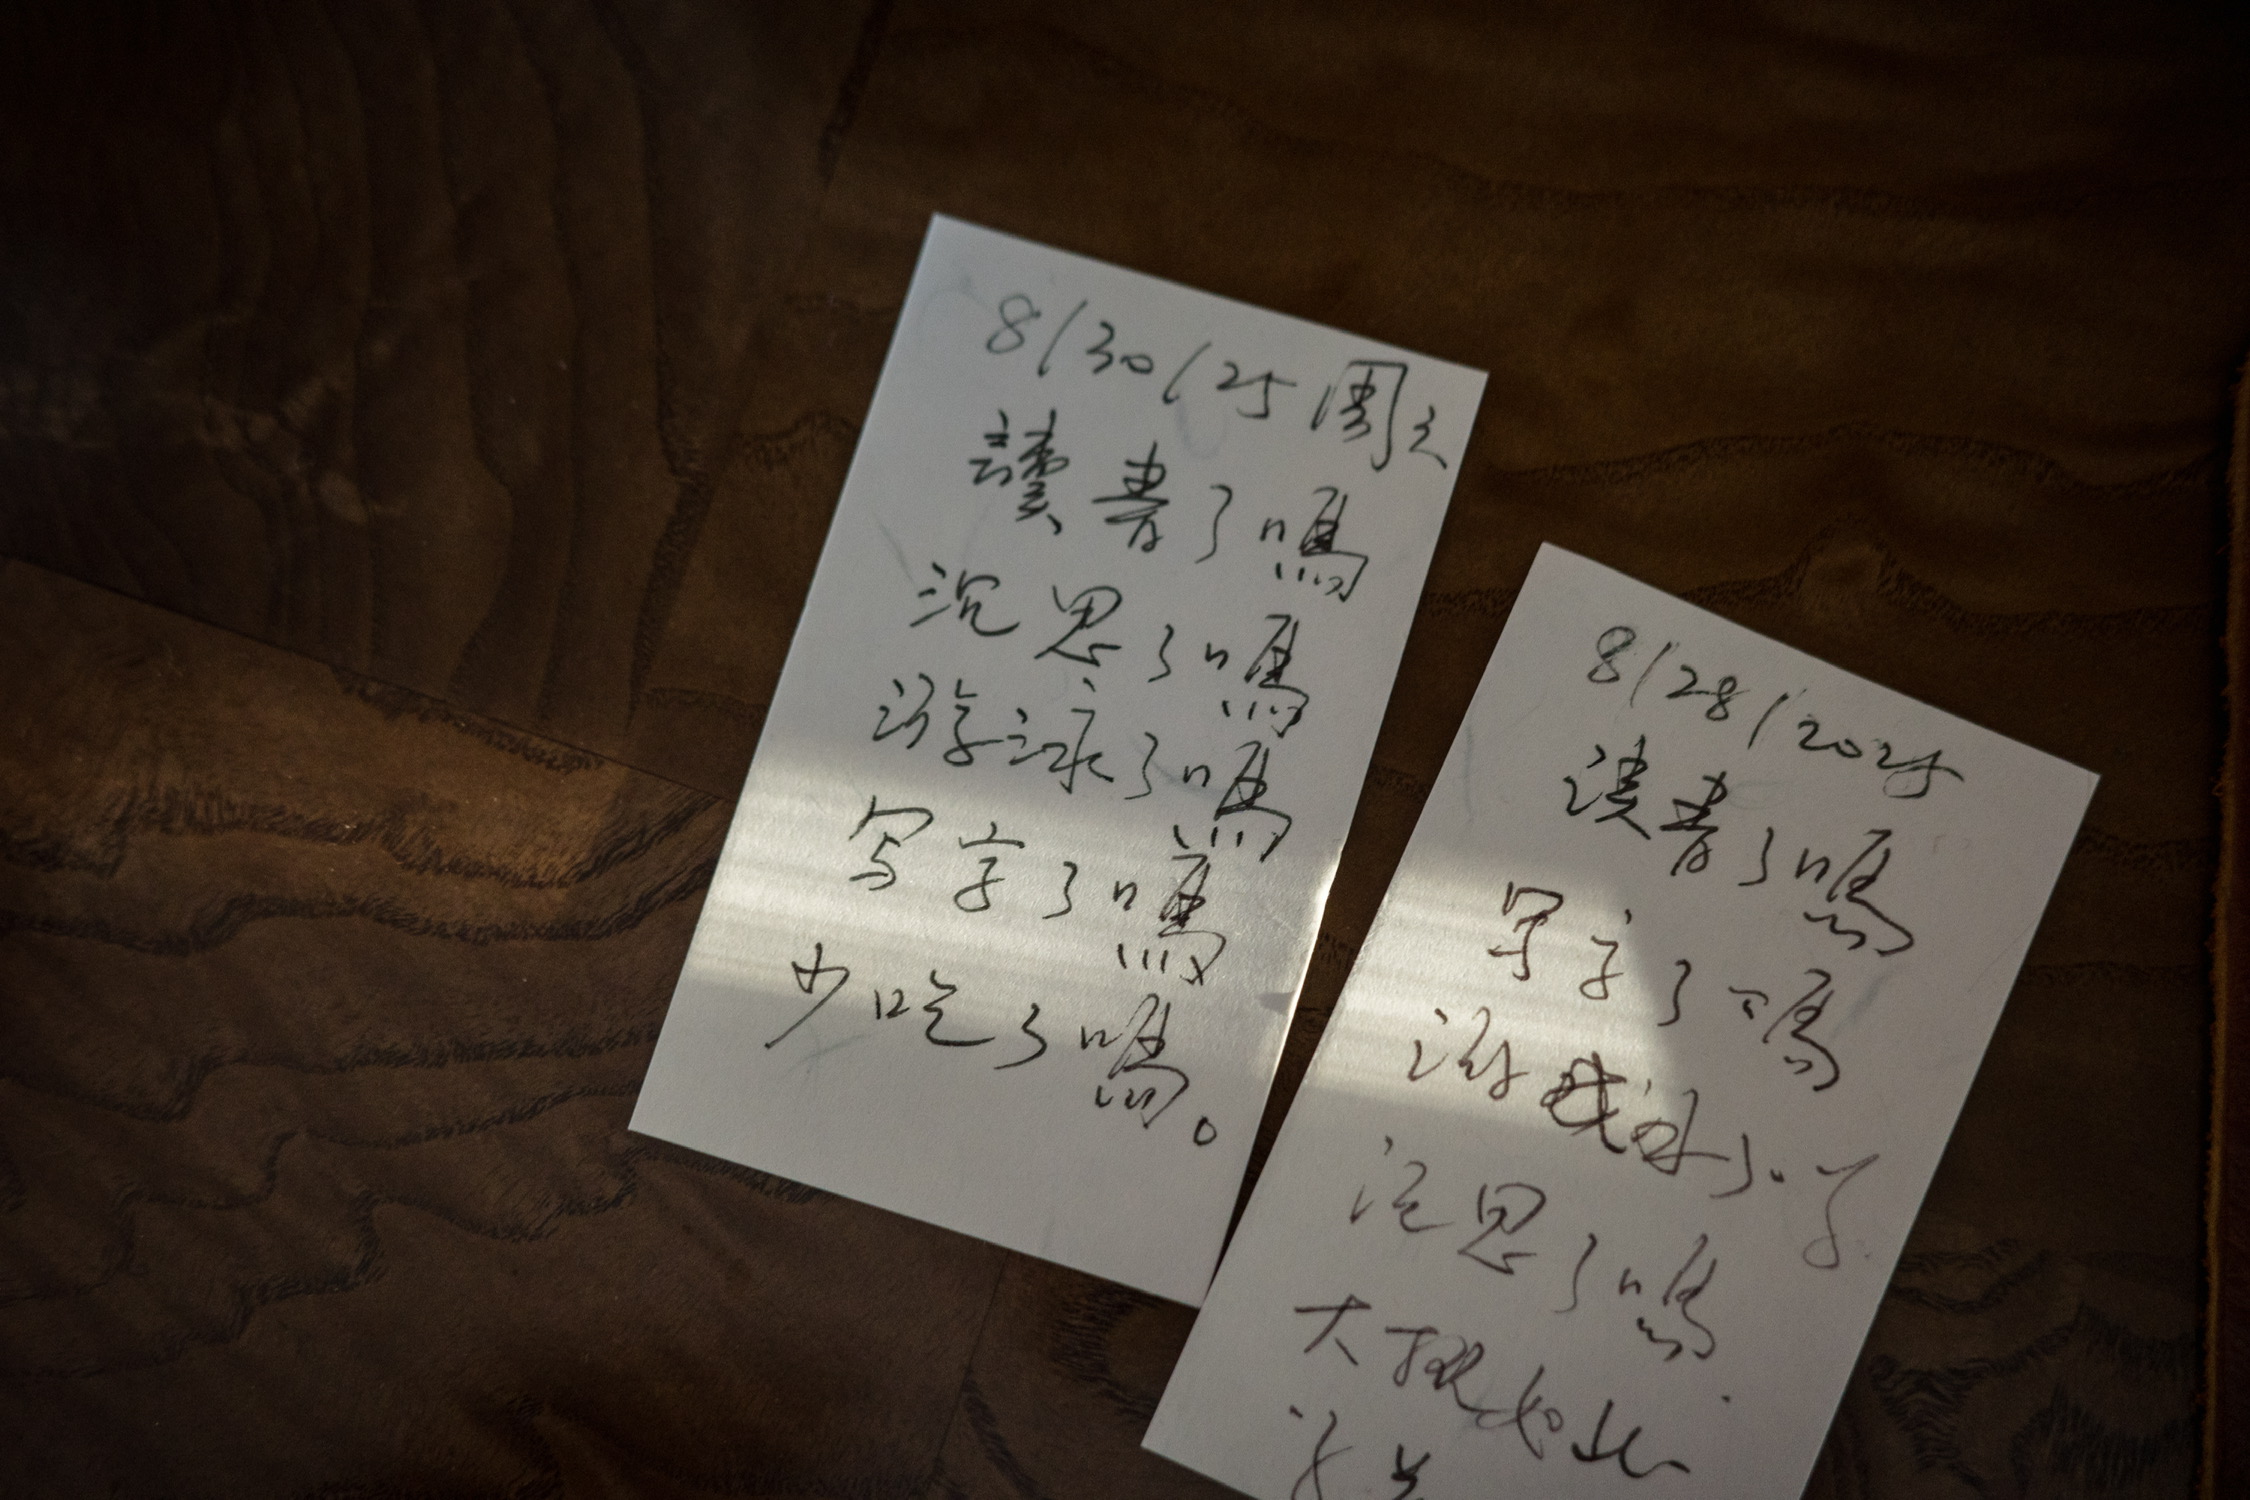 8/30/25 周六
讀書了嗎
沉思了嗎
游泳了嗎
写字了嗎
少吃了嗎。
8/28/2025
读書了嗎
写字了嗎
游泳了
沉思了嗎
大概如此